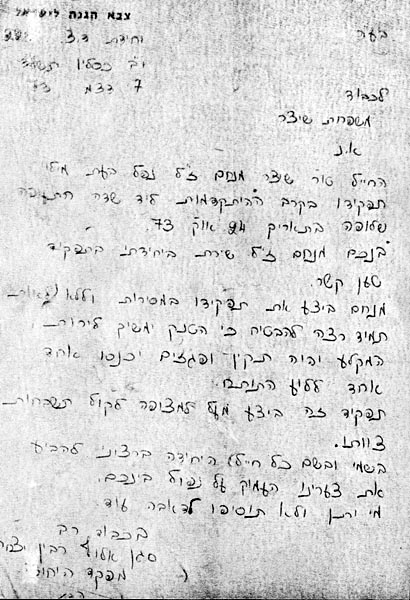 צבא הגנה לישראל
בע"ה
יחידת ד.צ.
י"ב כסליו תשל"ד
7 דצמ 73
לכבוד
משפחת שיצר
א.נ
החייל טור' שיצר מנחם ז"ל נפל בעת מילוי
תפקידו בקרב ההיתקדמות ליד שדה התעופה
שלופה בתאריך 24 אוק' 73.
בנכם מנחם ז"ל שירת ביחידתי בתפקיד
טען קשר.
מנחם ביצע את תפקידו במסירות וללא
תמיד רצה להבטיח כי הטנק ימשיך לירות,
המקלע יהיה תקין ופגזים יכנסו אחד
אחד ללוע התותח.
תפקיד זה ביצע מעל למצופה לקול תשבחות
צוותו.
בשמי ובשם כל חיילי היחידה ברצוני להביע
את צערינו העמוק על נפול בינכם.
מי יתן ולא תוסיפו לדאבה עוד
בכבוד רב
סגן אלוף רבין
מפקד היחידה